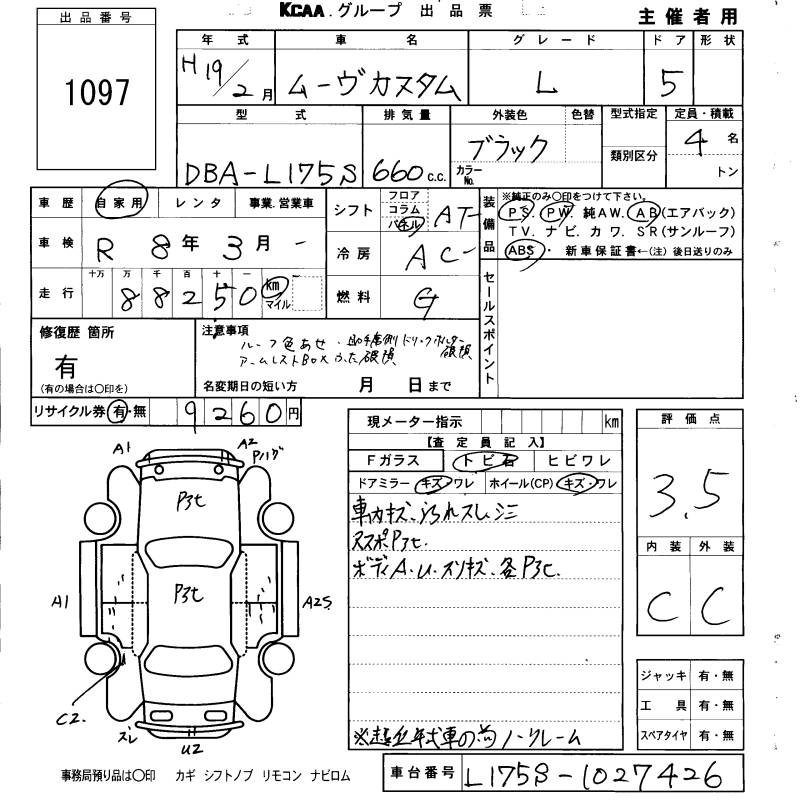 KCAA.グループ 出品票
主催者用
出品番号
1097
年式 車名 グレード ドア 形状
H19/2月 ムーヴカスタム L 5
型式 排気量 外装色 色替 型式指定 定員・積載
DBA-L175S 660c.c. ブラック 4名
カラーNo. 類別区分 トン
車歴 自家用 レンタ 事業.営業車
シフト フロア コラム パネル AT
装備品 ※純正のみ○印をつけて下さい。
PS PW 純AW. AB(エアバック)
TV. ナビ. カワ. SR(サンルーフ)
ABS・ 新車保証書←(注)後日送りのみ
車検 R 8年 3月
冷房 AC
走行 十万 万 千 百 十 一 km マイル
88250
燃料 G
セールスポイント
修復歴 箇所
有
(有の場合は○印を)
注意事項
ルーフ色あせ・助手席側ドリンクホルダー破損
アームレストBOXふた破損
名変期日の短い方 月 日まで
リサイクル券 有・無 9260円
現メーター指示 km
【査定員記入】
Fガラス トビ石 ヒビワレ
ドアミラー キズ・ワレ ホイール(CP) キズ・ワレ
車内キズ、汚れスレ、シミ
ボディA.U.スリキズ、各
ノークレーム
評価点
3.5
内装 外装
C C
ジャッキ 有・無
工具 有・無
スペアタイヤ 有・無
A1
A2
A1
A2S
C2.
ズレ
U2
事務局預り品は○印 カギ シフトノブ リモコン ナビロム
車台番号 L175S-1027426